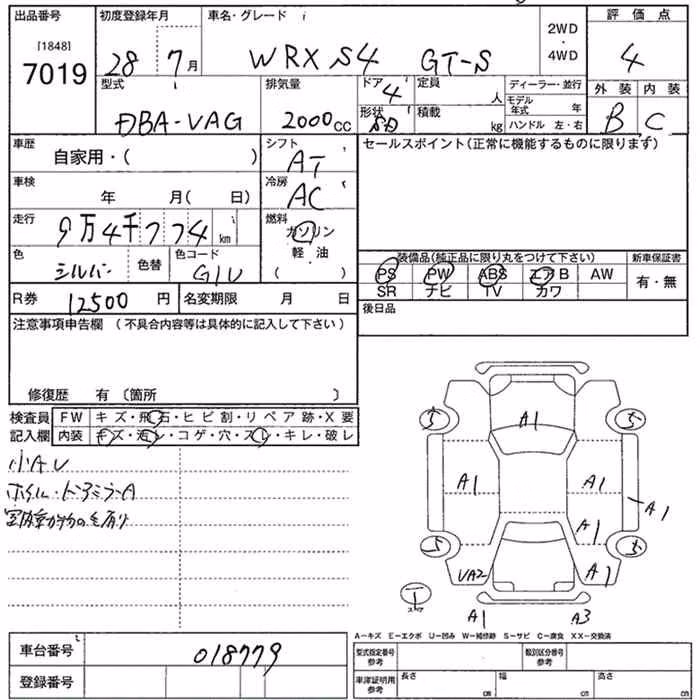 出品番号 初度登録年月 車名・グレード 2WD ・ 4WD 評価点
[1848]
7019 28 7月 WRX S4 GT-S 4
型式 排気量 ドア 4 定員 人 ディーラー・並行 外装 内装
DBA-VAG 2000cc 形状 SD 積載 kg モデル年式 年 B C
ハンドル 左・右
車歴 自家用・( ) シフト AT セールスポイント(正常に機能するものに限ります)
車検 年 月( 日) 冷房 AC
走行 9万4千774km 燃料 ガソリン
軽・油
( )
色 シルバー 色替 色コード G1U 装備品(純正品に限り丸をつけて下さい) 新車保証書
PS PW ABS エアB AW 有・無
SR ナビ TV カワ
R券 12500円 名変期限 月 日 後日品
注意事項申告欄 (不具合内容等は具体的に記入して下さい)
修復歴 有〔箇所 〕
検査員 FW キズ・飛石・ヒビ割・リペア跡・X要
記入欄 内装 キズ・汚レ・コゲ・穴・スレ・キレ・破レ
小AU
ホイル・ドアミラーA
A1
5 5
A1 A1
A1
A1
5 5
UA2 A1
T
スペア
A1 A3
A-キズ E-エクボ U-凹み W-補修跡 S-サビ C-腐食 XX-交換済
車台番号 018779 型式指定番号 参考 類別区分番号 参考
登録番号 車庫証明用 参考 長さ cm 幅 cm 高さ cm